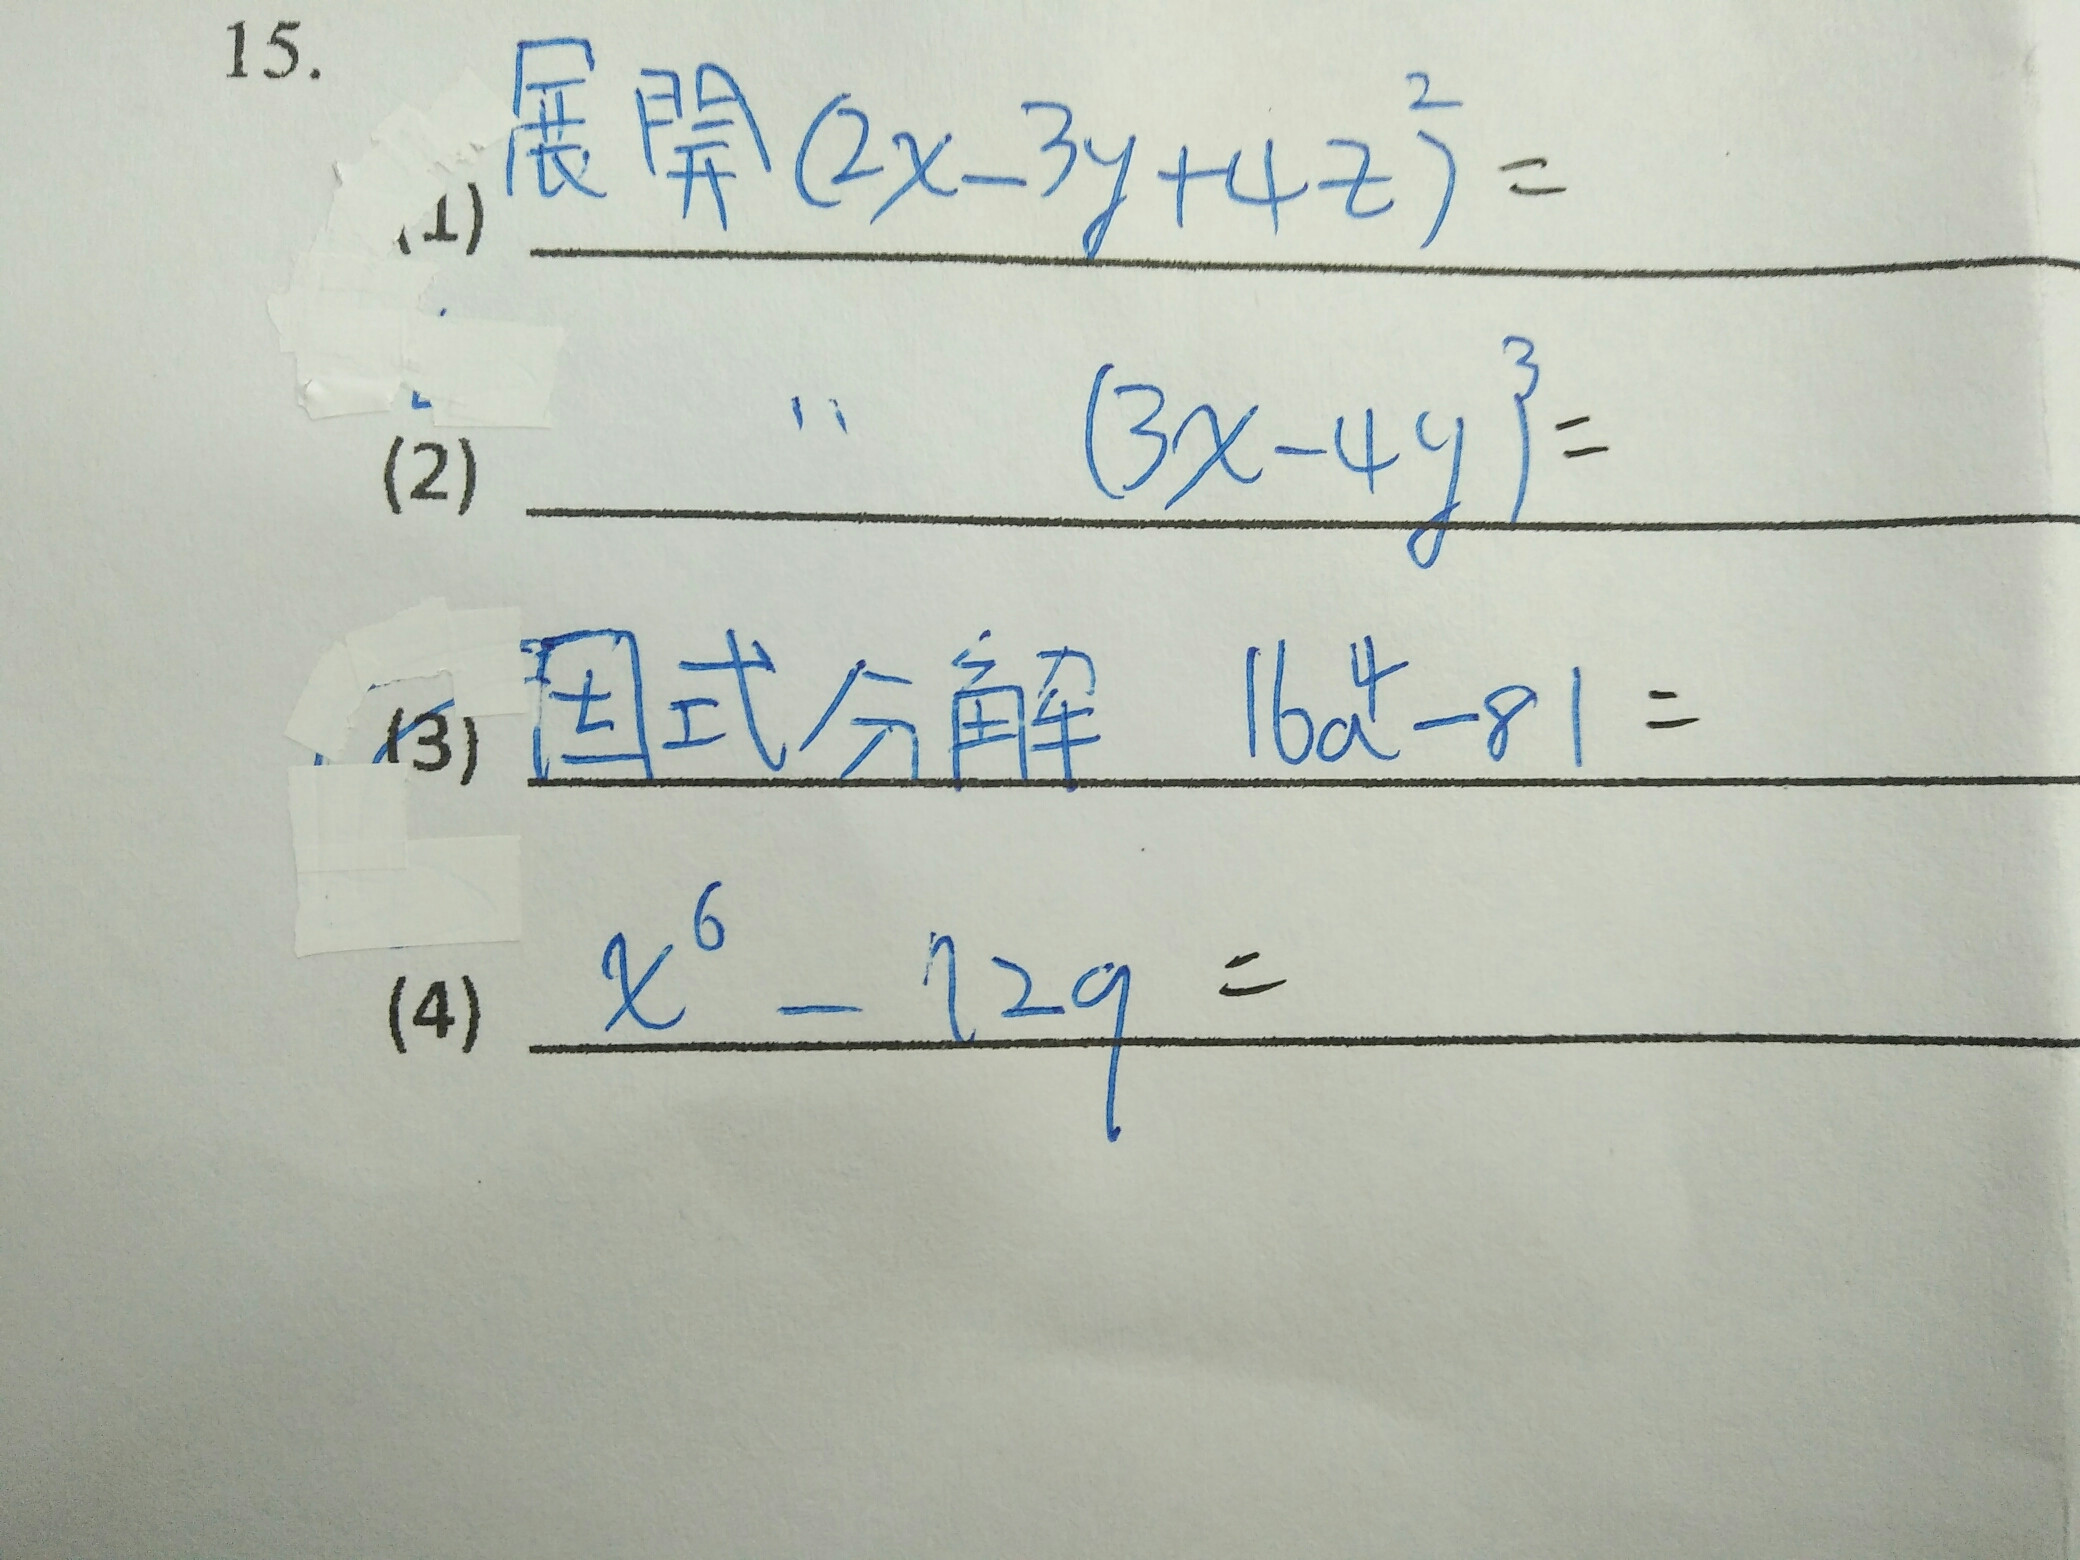 15.
(1) 展開(2x-3y+4z)²=
(2) 〃 (3x-4y)³=
(3) 因式分解 16a⁴-81=
(4) x⁶-729=